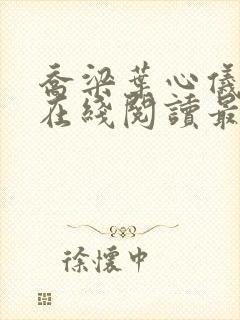 喬梁葉心儀
在綫閱讀最
徐懷中